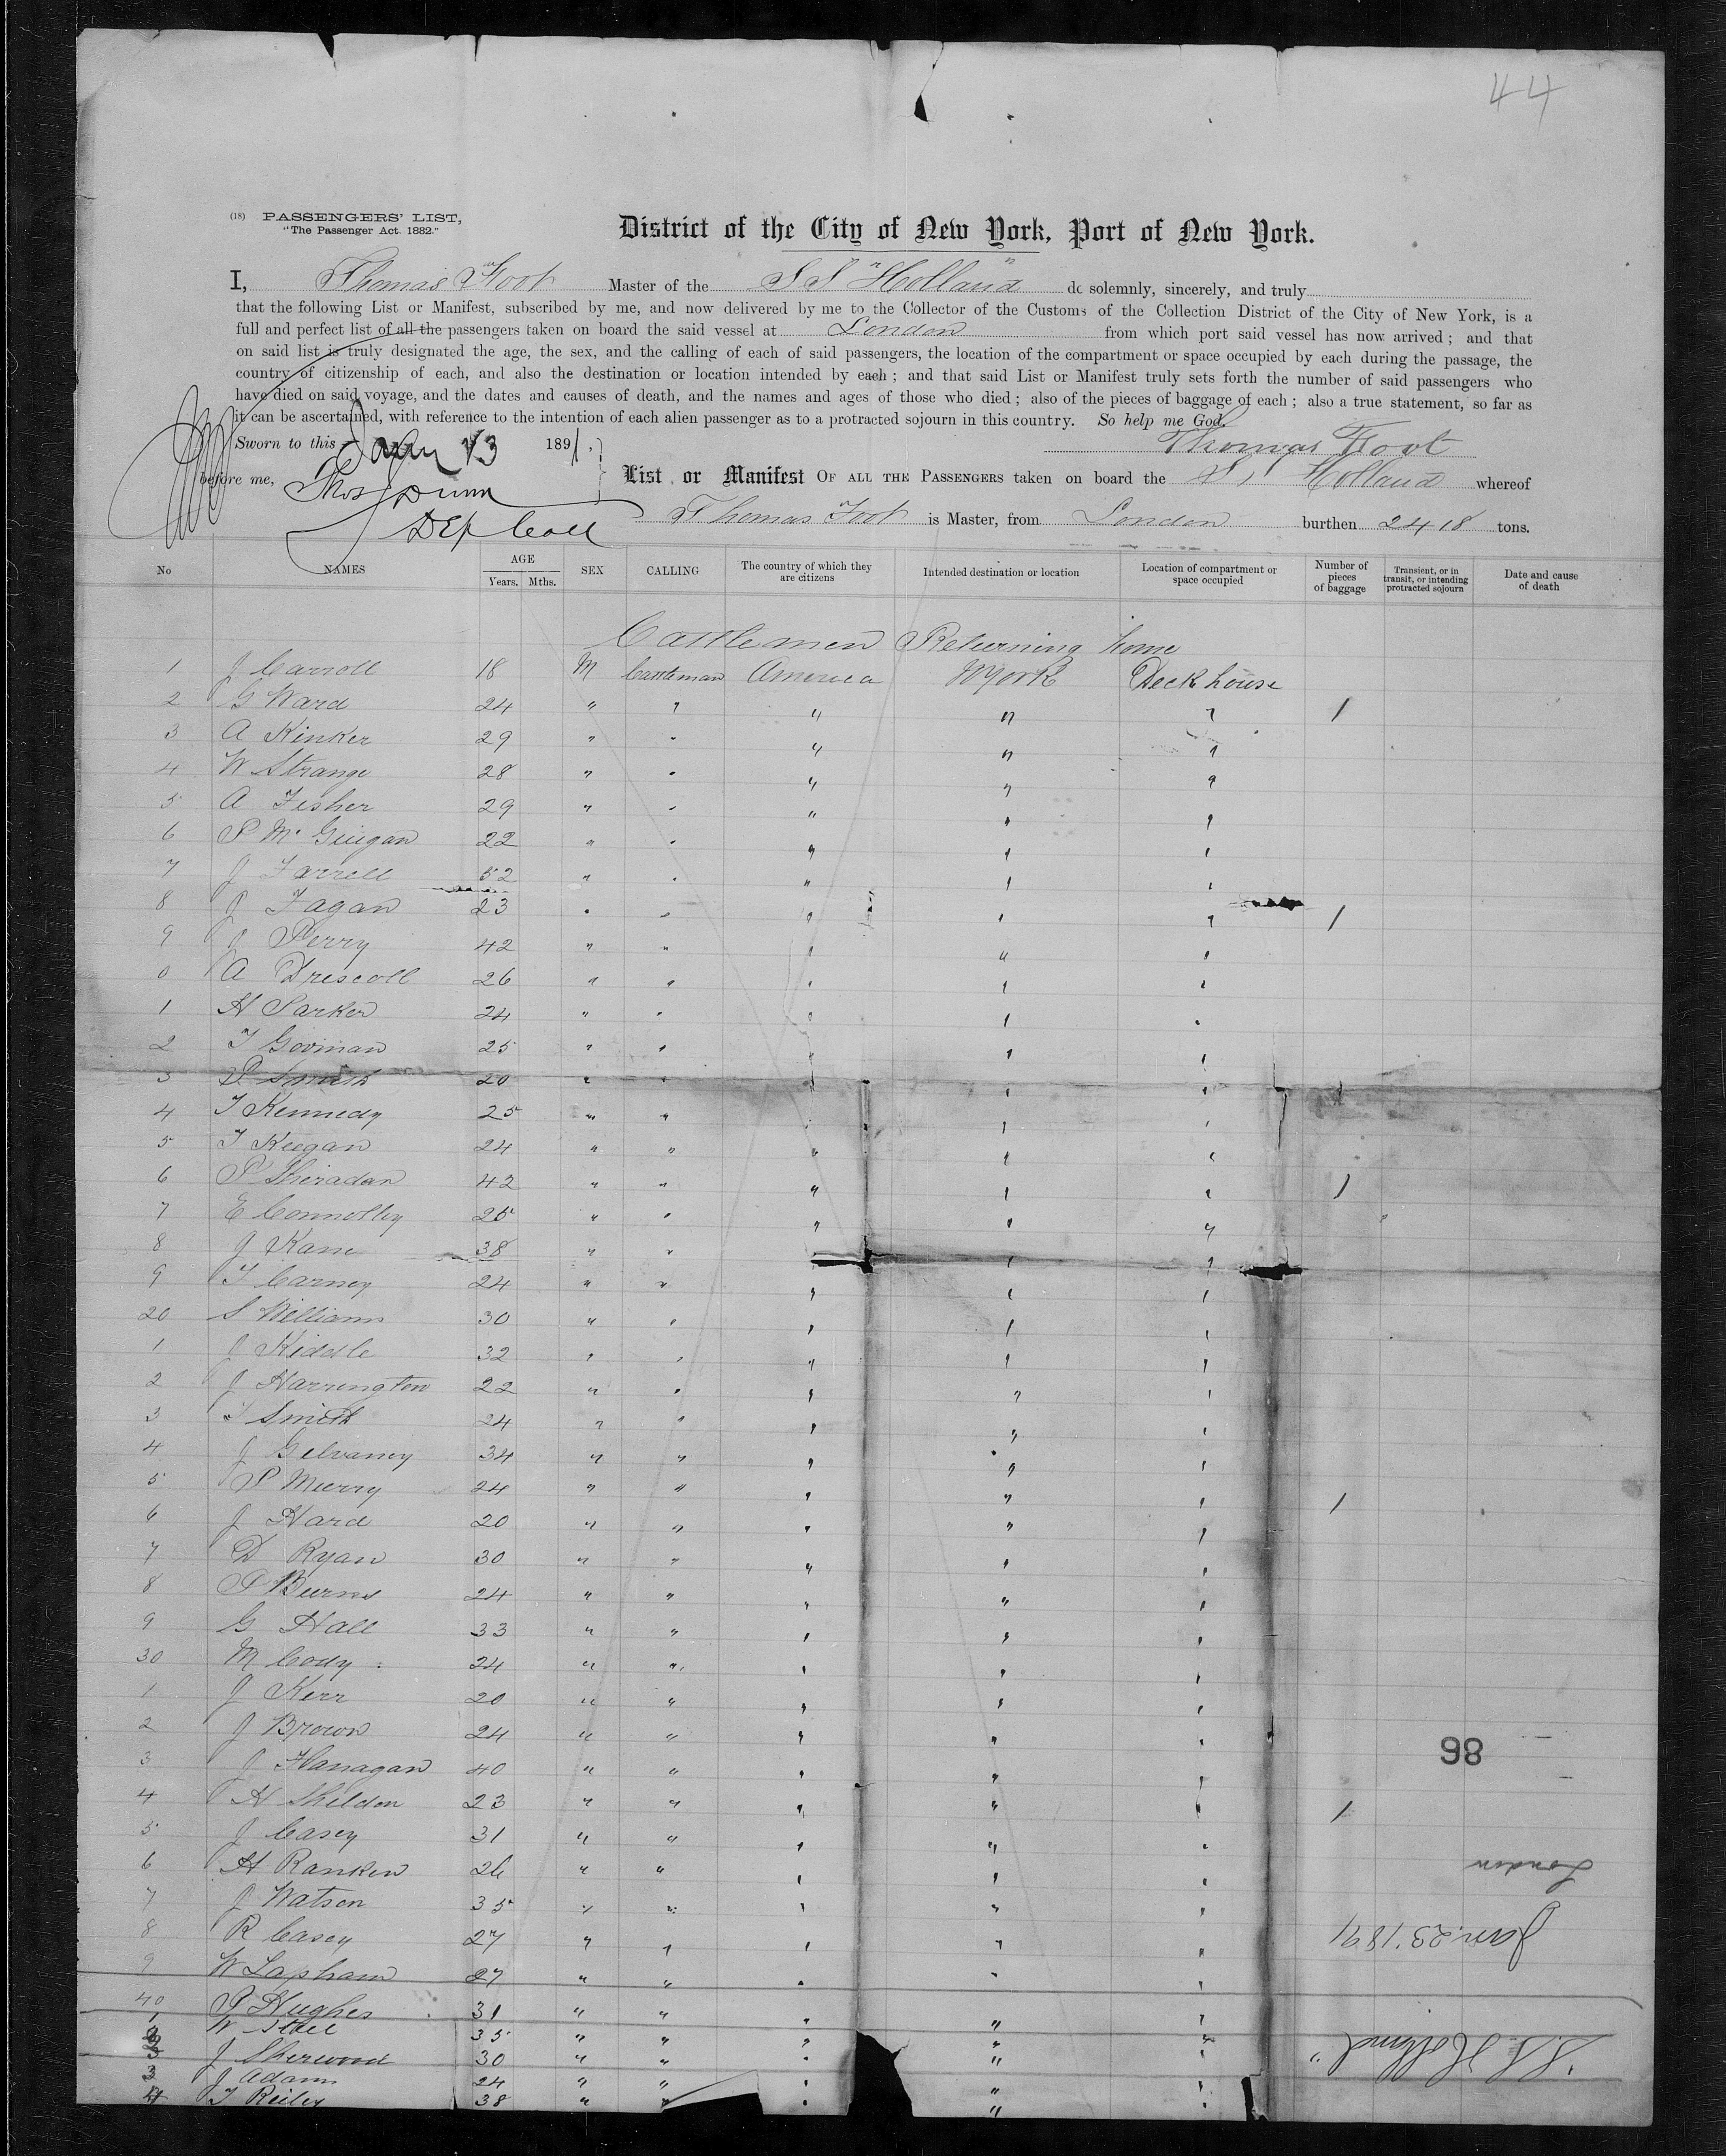 44
(18) PASSENGERS' LIST,
"The Passenger Act. 1882."
District of the City of New York, Port of New York.
I, Thomas Foot Master of the SS "Holland" do solemnly, sincerely, and truly
that the following List or Manifest, subscribed by me, and now delivered by me to the Collector of the Customs of the Collection District of the City of New York, is a
full and perfect list of all the passengers taken on board the said vessel at London from which port said vessel has now arrived; and that
on said list is truly designated the age, the sex, and the calling of each of said passengers, the location of the compartment or space occupied by each during the passage, the
country of citizenship of each, and also the destination or location intended by each; and that said List or Manifest truly sets forth the number of said passengers who
have died on said voyage, and the dates and causes of death, and the names and ages of those who died; also of the pieces of baggage of each; also a true statement, so far as
it can be ascertained, with reference to the intention of each alien passenger as to a protracted sojourn in this country. So help me God.
Sworn to this 1891. Thomas Foot
before me, List or Manifest OF ALL THE PASSENGERS taken on board the Holland whereof
Thomas Foot is Master, from London burthen 2418 tons.
No NAMES AGE Years. Mths. SEX CALLING The country of which they are citizens Intended destination or location Location of compartment or space occupied Number of pieces of baggage Transient, or in transit, or intending protracted sojourn Date and cause of death
Cattlemen Returning home
1 J Carroll 18 M Cattleman America NYork Deckhouse
2 G Ward 24 " " " " " 1
3 A Kinker 29 " " " " "
4 W Strange 28 " " " " "
5 A Fisher 29 " " " " "
6 P McGuigan 22 " " " " "
7 J Farrell 52 " " " " "
8 J Fagan 23 " " " " " 1
9 J Perry 42 " " " " "
0 A Driscoll 26 " " " " "
1 H Parker 24 " " " " "
2 T Gorman 25 " " " " "
3 P Smith 20 " " " " "
4 T Kennedy 25 " " " " "
5 T Keegan 24 " " " " "
6 P Sheradan 42 " " " " " 1
7 E Connolly 25 " " " " "
8 J Kane 38 " " " " "
9 T Carney 24 " " " " "
20 S Williams 30 " " " " "
1 J Kiddle 32 " " " " "
2 J Harrington 22 " " " " "
3 T Smith 24 " " " " "
4 J Gelvaney 34 " " " " "
5 P Murry 24 " " " " " 1
6 J Hard 20 " " " " "
7 D Ryan 30 " " " " "
8 P Burns 24 " " " " "
9 G Hall 33 " " " " "
30 M Cody 24 " " " " "
1 J Kerr 20 " " " " "
2 J Brown 24 " " " " "
3 J Flanagan 40 " " " " "
4 H Sheldon 23 " " " " " 1
5 J Casey 31 " " " " "
6 H Ranken 26 " " " " "
7 J Watson 35 " " " " "
8 R Casey 27 " " " " "
9 W Lapham 27 " " " " "
40 P Hughes 31 " " " " "
1 W Steel 35 " " " " "
2 J Sherwood 30 " " " " "
3 J Adams 24 " " " " "
4 T Reiley 38 " " " " "
98
London
Jan. 23. 1891
"S.S. Holland"